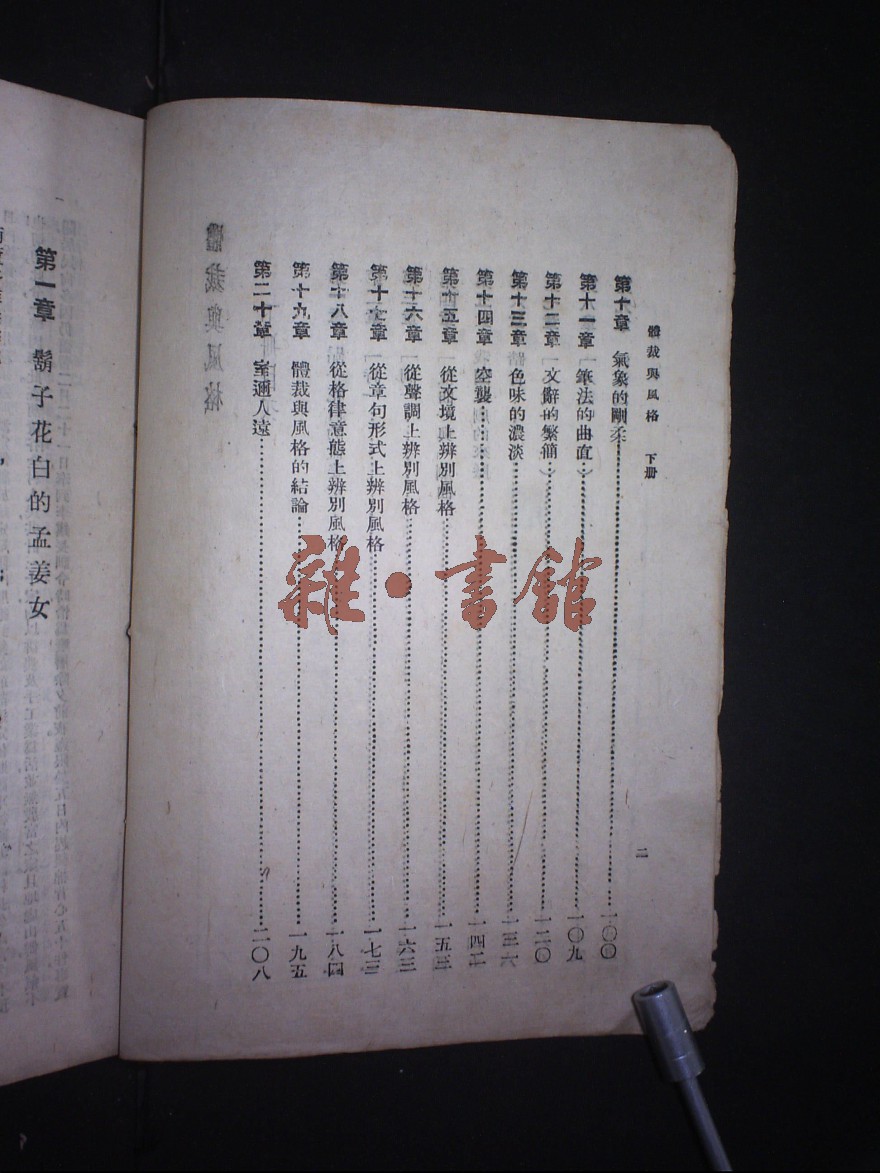 體裁與風格 下册
第十章 氣象的剛柔 一〇〇
第十一章 筆法的曲直 一〇九
第十二章 文辭的繁簡 一二〇
第十三章 色味的濃淡 一三六
第十四章 空襲 一四二
第十五章 從文境上辨別風格 一五三
第十六章 從聲調上辨別風格 一六三
第十七章 從章句形式上辨別風格 一七三
第十八章 從格律意態上辨別風格 一八四
第十九章 體裁與風格的結論 一九五
第二十章 室邇人遠 二〇八
二
第一章 鬍子花白的孟姜女
雜·書館